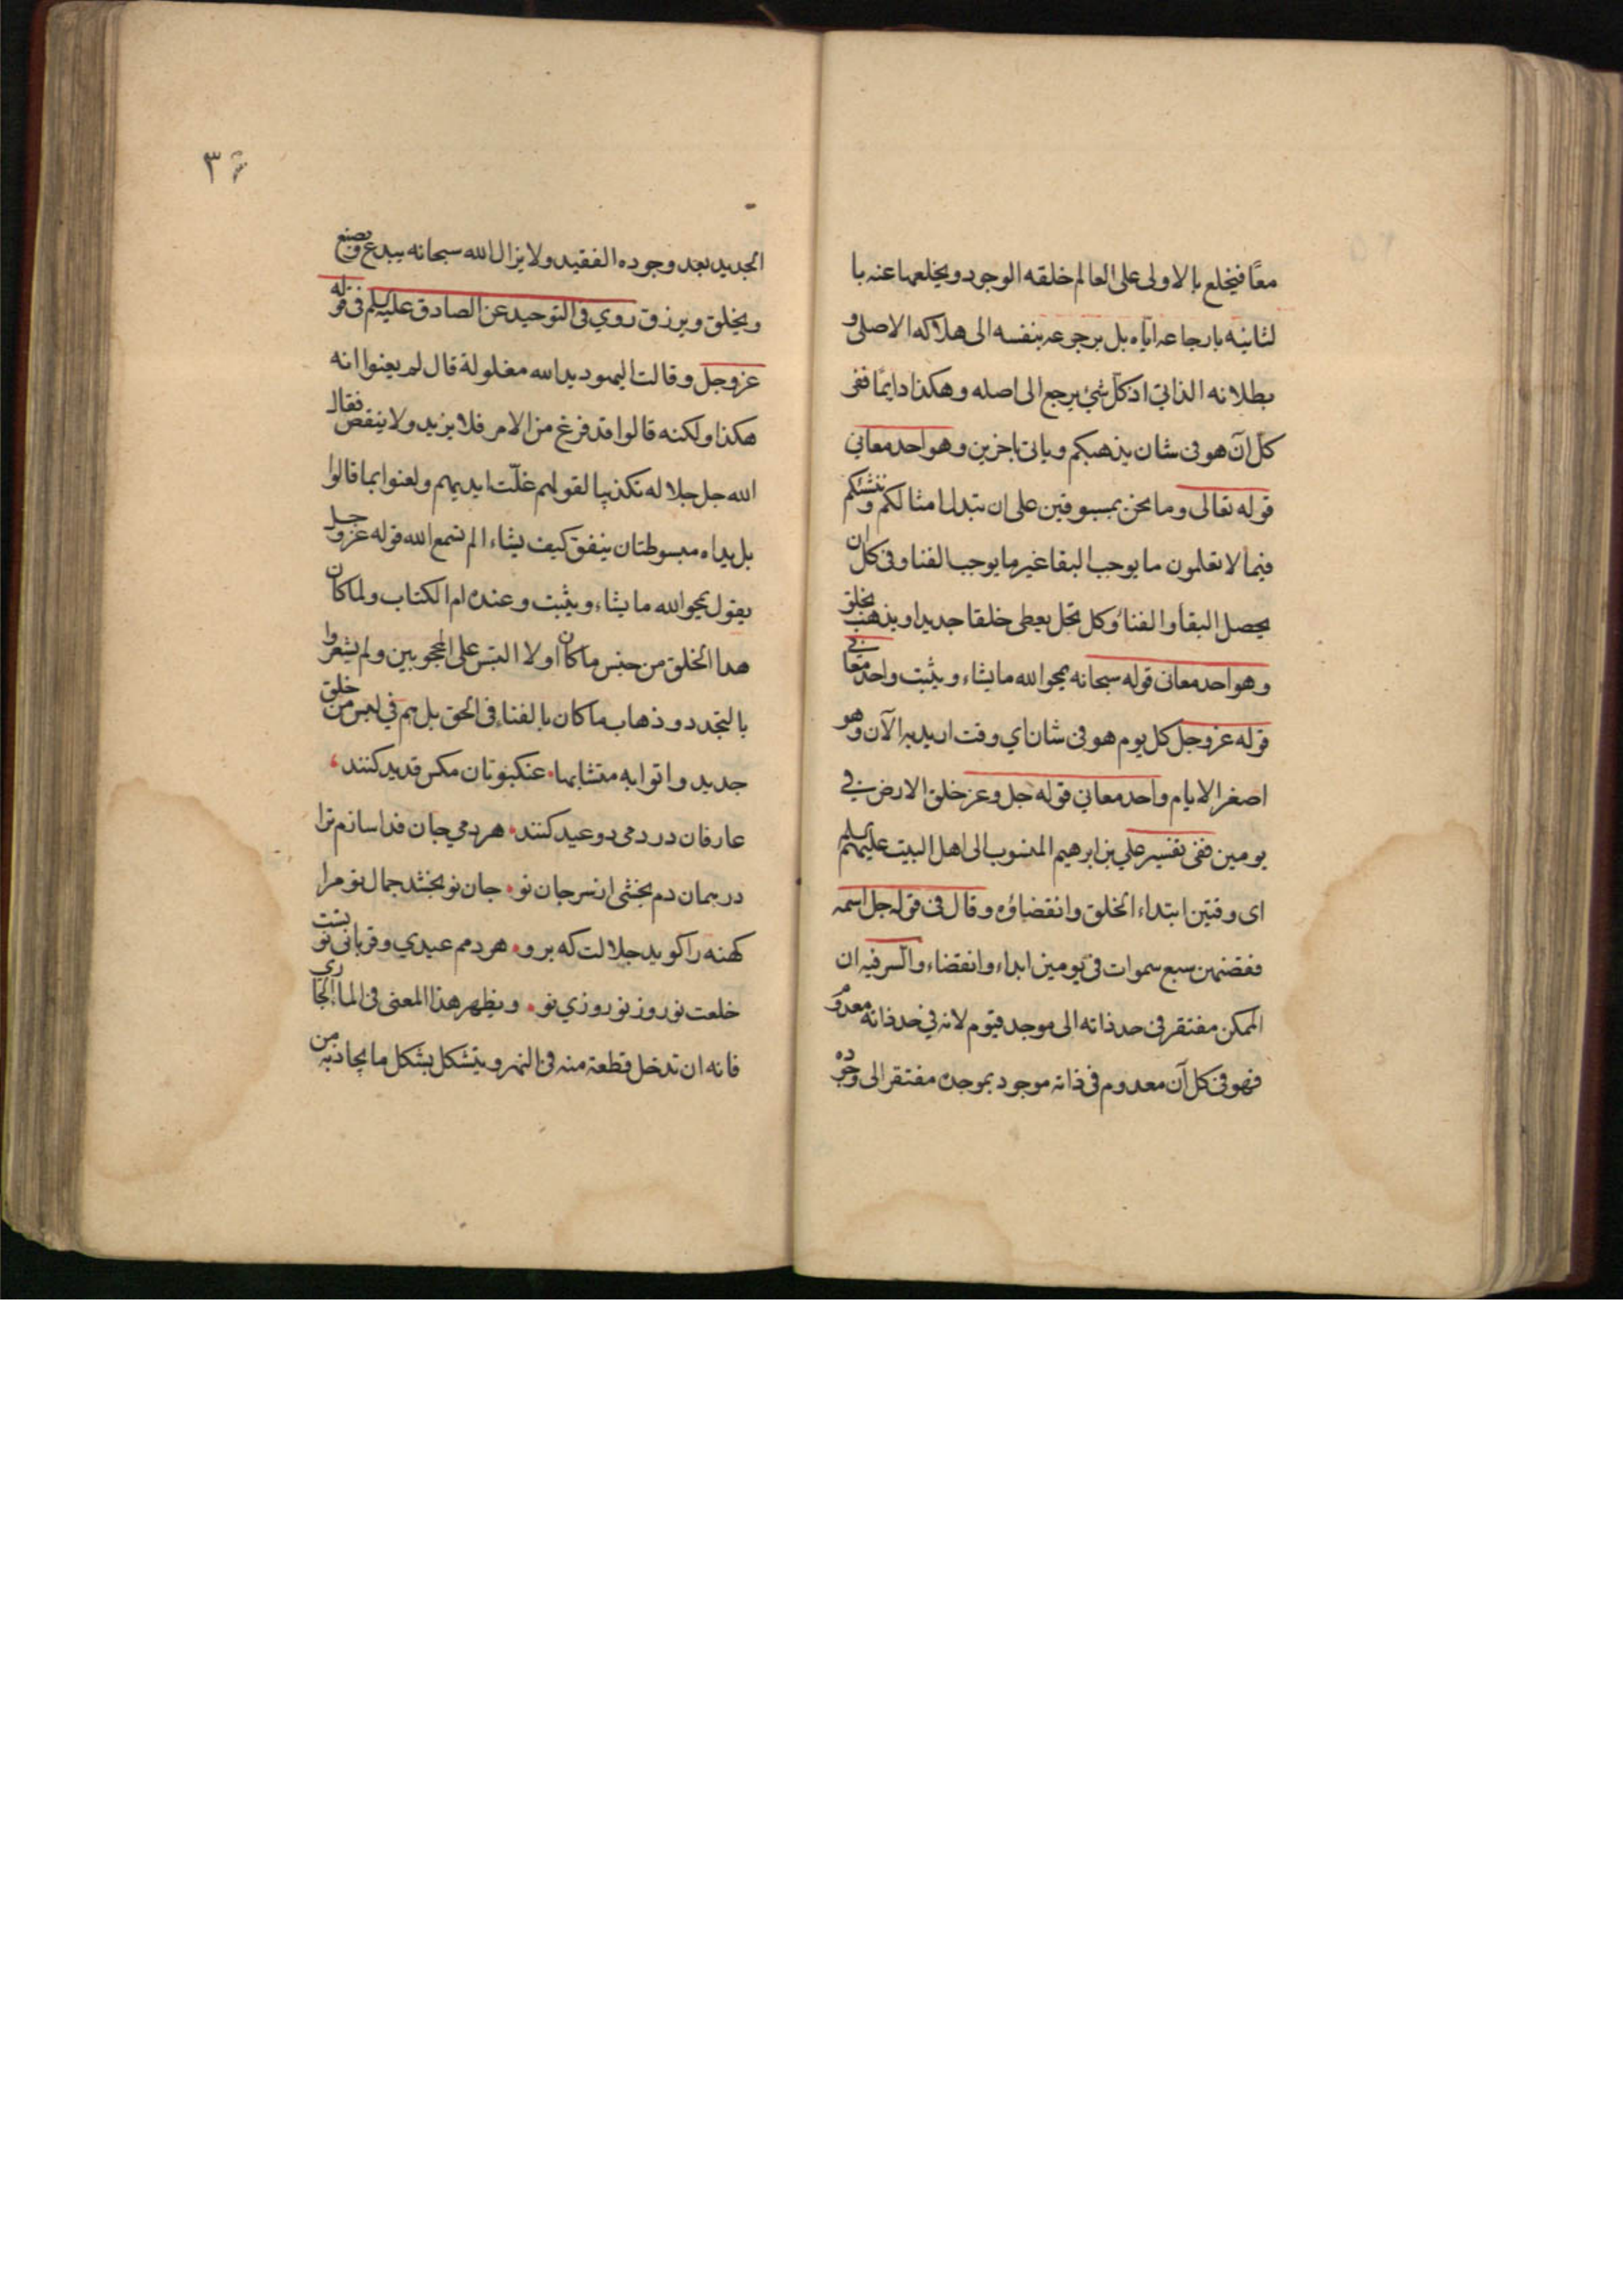 معًا فيخلع بالاولى على العالم خلقه الوجود ويخلعها عنه با
لثانيه بارجاعه اياه بل برجوعه بنفسه الى هلاكه الاصلى و
بطلانه الذاتي اذ كل شئ يرجع الى اصله وهكذا دايمًا ففى
كل آن هو فى شان يذهبكم وياتى باخرين وهو احد معاني
قوله تعالى وما نحن بمسبوقين على ان نبدل امثالكم وننشئكم
فيما لا تعلمون ما يوجب البقا غير ما يوجب الفنا وفى كل ان
يحصل البقأ والفنأ وكل تجل يعطى خلقا جديدا ويذهب بخلق
وهو احد معانى قوله سبحانه يمحوا الله ما يشاء ويثبت واحد معانى
قوله عز وجل كل يوم هو فى شان اي وقت اريد به الآن وهو
اصغر الايام واحد معاني قوله جل وعز خلق الارض في
يومين ففى تفسير علي بن ابرهيم المنسوب الى اهل البيت عليهم السلم
اى وقتين ابتداء الخلق وانقضاؤه وقال فى قوله جل اسمه
فقضٰهن سبع سموات فى يومين ابداء وانقضاء والسر فيه ان
الممكن مفتقر فى حد ذاته الى موجد قيوم لانه في حد ذاته معدوم
فهو فى كل آن معدوم فى ذاته موجود بموجده مفتقر الى وجوده
٣٦
الجديد بعد وجوده الفقيد ولا يزال الله سبحانه يبدع ويصنع
ويخلق ويرزق روي فى التوحيد عن الصادق عليه السلم فى قوله
عز وجل وقالت اليهود يد الله مغلولة قال لم يعنوا انه
هكذا ولكنه قالوا قد فرغ من الامر فلا يزيد ولا ينقص فقال
الله جل جلاله تكذيبا لقولهم غلّت ايديهم ولعنوا بما قالوا
بل يداه مبسوطتان ينفق كيف يشاء الم تسمع الله قوله عز وجل
يقول يمحوا الله ما يشاء ويثبت وعنده ام الكتاب ولما كان
هذا الخلق من جنس ما كان اولا التبس على المحجوبين ولم يشعروا
بالتجدد وذهاب ما كان بالفناء فى الحق بل هم في لبس من خلق
جديد واتوا به متشابها عنكبوتان مكس قديد كنند
عارفان در دمى دو عيد كنند هر دمي جان فدا سازم ترا
در همان دم بخشى از سر جان نو جان نو بخشد جمال تو مرا
كهنه را كويد جلالت كه برو هر دمم عيدي وقربانى تست
خلعت نوروز نو روزي نو ويظهر هذا المعنى فى الماء الجاري
فانه ان تدخل قطعة منه فى النهر ويتشكل بشكل ما يحاذيه من